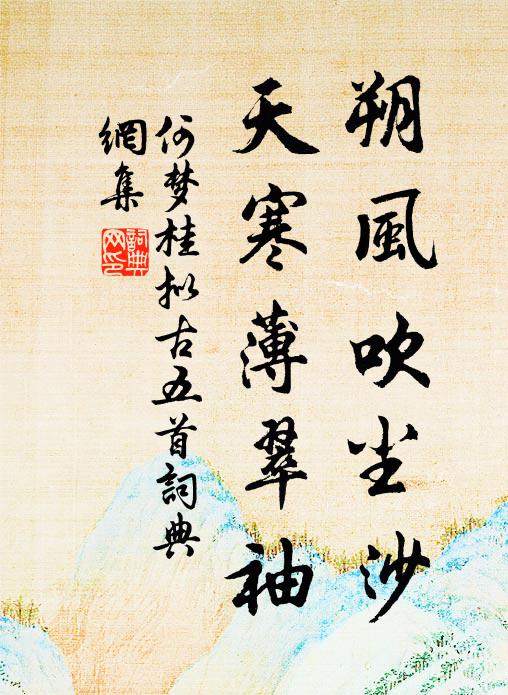 朔風吹尘沙
天寒薄翠袖
何梦桂拟古五首詞典
網集
詞典
网印